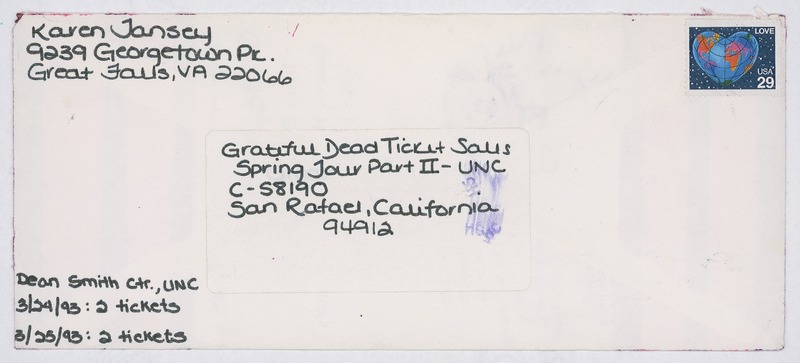 Karen Jansey
9239 Georgetown Pk.
Great Falls, VA 22066
LOVE
USA
29
Grateful Dead Ticket Sales
Spring Tour Part II - UNC
C-S8190
San Rafael, California
94912
Dean Smith Ctr., UNC
3/24/93: 2 tickets
3/25/93: 2 tickets